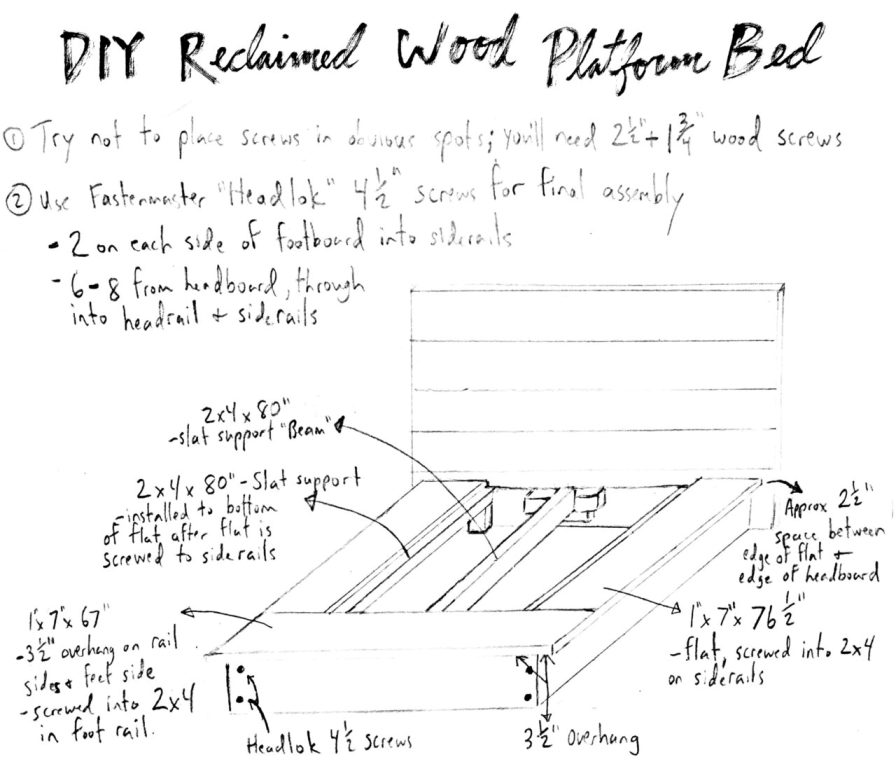 DIY Reclaimed Wood Platform Bed
① Try not to place screws in obvious spots; you'll need 2 1/2" + 1 3/4" wood screws
② Use Fastenmaster "Headlok" 4 1/2" screws for final assembly
- 2 on each side of footboard into siderails
- 6-8 from headboard, through
into headrail + siderails
2x4x80"
-slat support "Beam"
2x4x80" - Slat support
-installed to bottom
of flat after flat is
screwed to siderails
Approx 2 1/2"
space between
edge of flat +
edge of headboard
1"x7"x67"
-3 1/2" overhang on rail
sides + feet side
-screwed into 2x4
in foot rail.
1"x7"x76 1/2"
-flat, screwed into 2x4
on siderails
Headlok 4 1/2 screws
3 1/2" overhang